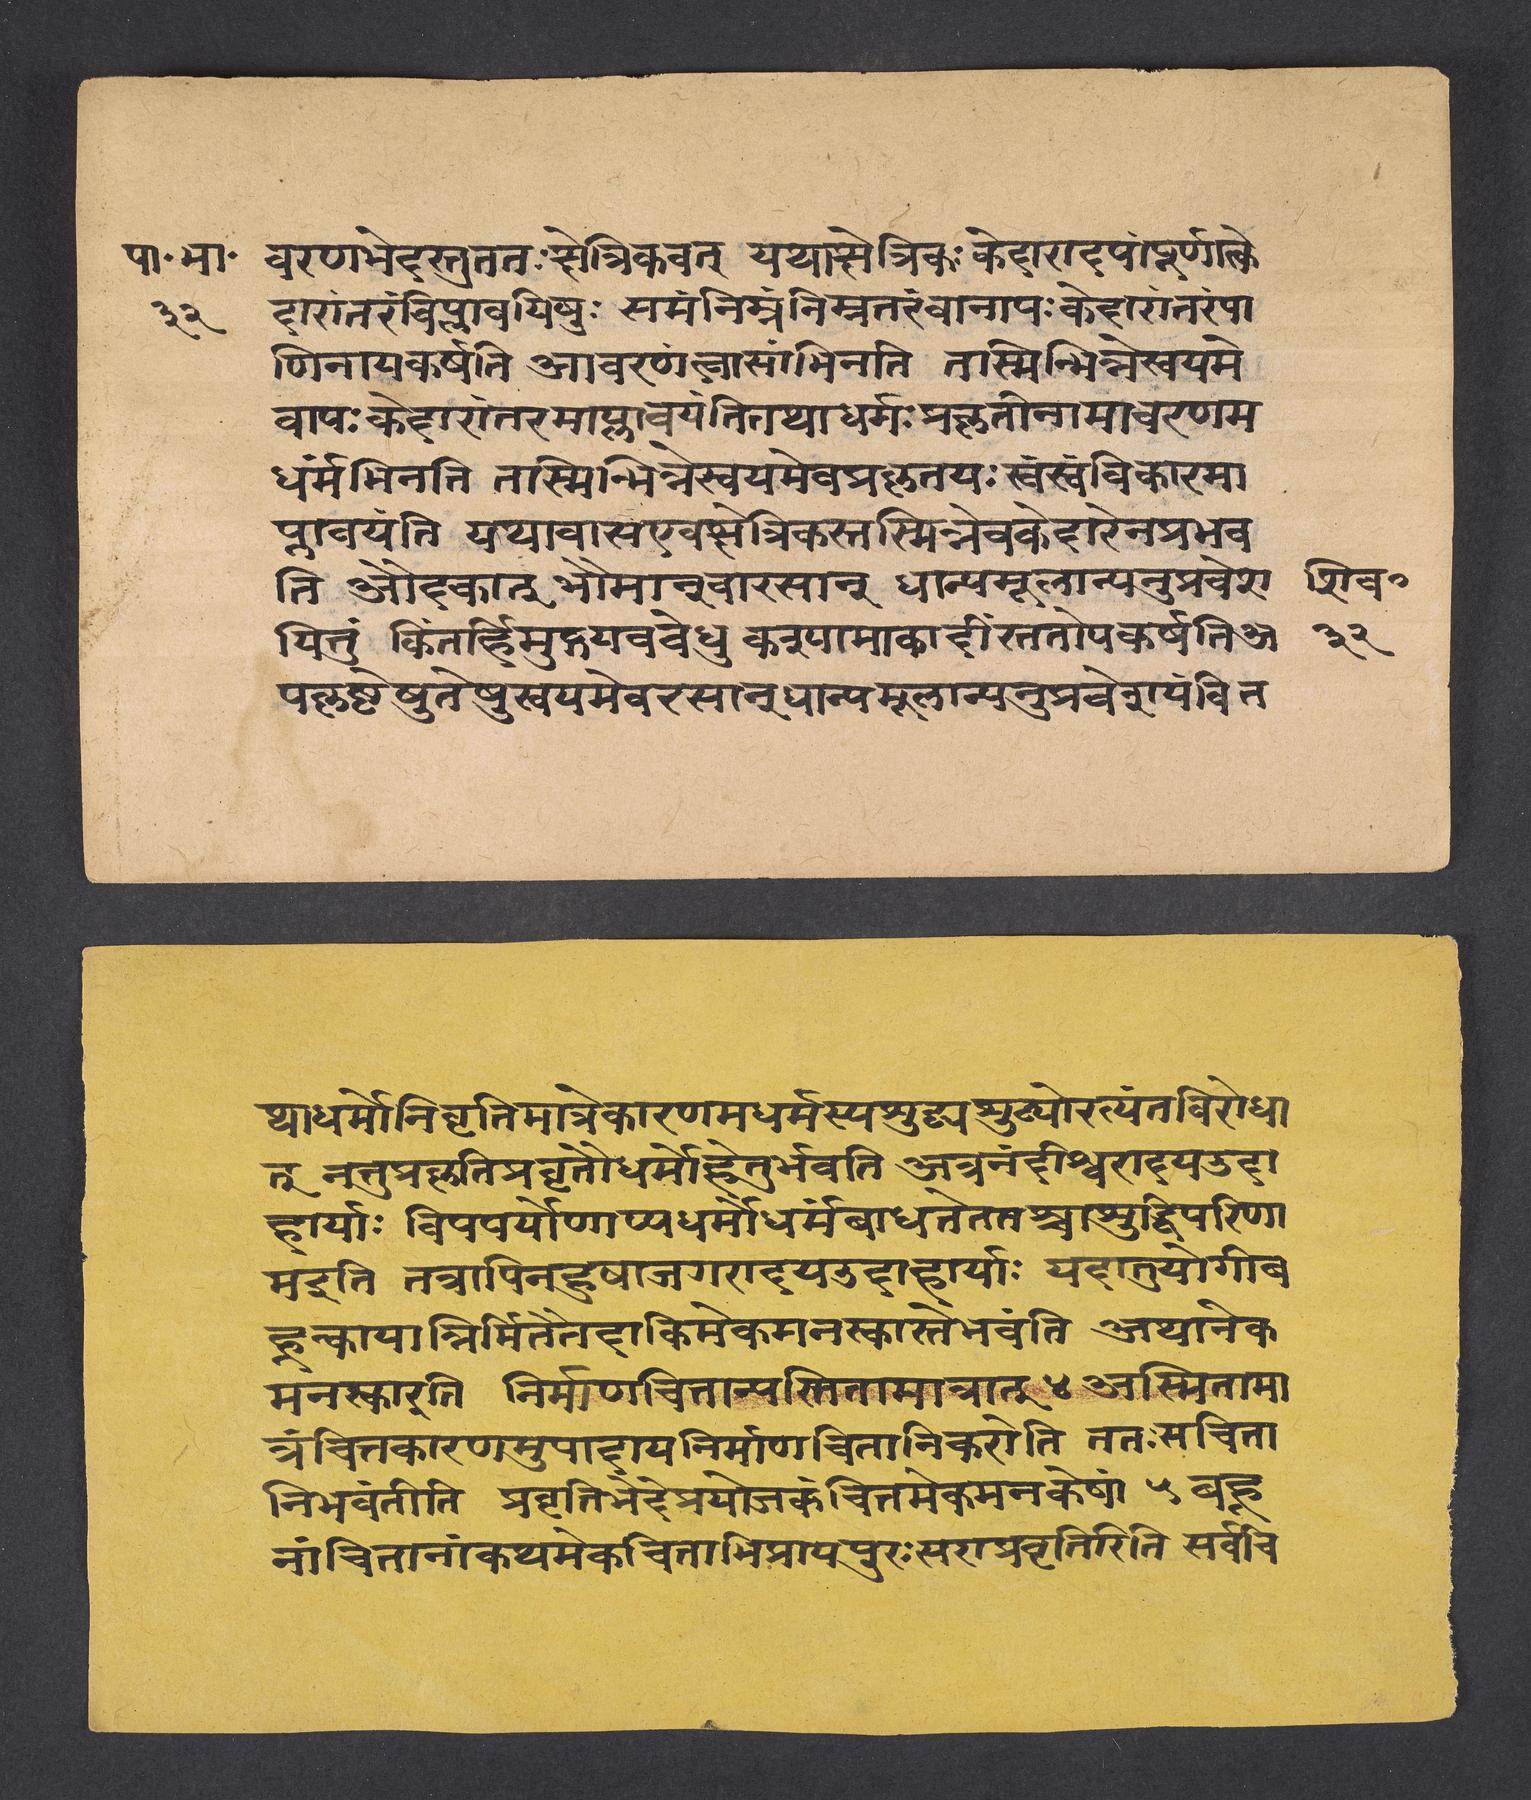 पा॰ भा॰
३२
वरणभेदस्तुततःक्षेत्रिकवत् यथाक्षेत्रिकः केदारादपांपूर्णात्के
दारांतरंविप्लावयिषुः समंनिम्नंनिम्नतरंवानापःकेदारांतरंपा
णिनायकर्षति आवरणंत्वासांभिनति तास्मिन्भिन्नेस्वयमे
वापःकेदारांतरमाप्लावयंतितथाधर्मःप्रकृतीनामावरणम
धर्मंभिनत्ति तास्मिन्भिन्नेस्वयमेवप्रकृतयःस्वंस्वंविकारमा
प्लावयंति यथावासएवक्षेत्रिकस्तस्मिन्नेवकेदारेनप्रभव
ति औदकात् भौमान्वारसान् धान्यमूलान्यनुप्रवेश
यितुं किंतर्हिमुद्गयववेधु कन्पामाकादींस्ततोपकर्षतिअ
पकृष्टेषुतेषुस्वयमेवरसान्धान्यमूलान्यनुप्रवेशयंवित
शिव॰
३२
थाधर्मोनिवृतिमात्रेकारणमधर्मस्यशुद्ध्यशुद्ध्योरत्यंतविरोधा
त् नतुप्रकृतिप्रवृतौधर्मोहेतुर्भवति अत्रनंदीश्वरादयउदा
हार्याः विपपर्योणाप्यधर्मोधर्मंबाधतेततश्चाशुद्धिपरिणा
मइति तत्रापिनहुषाजगरादयउदाहार्याः यदातुयोगीब
हून्कायान्निर्मितेतदाकिमेकमनस्कास्तेभवंति अथानेक
मनस्काइति निर्माणचितान्यस्तितामात्रात् ४ अस्मितामा
त्रंचित्तकारणमुपादायनिर्माणचितानिकरोति ततःसचिता
निभवंतीति प्रवृतिभेदेप्रयोजकंचित्तमेकमनकेषां ५ बहू
नांचितानांकथमेकचिताभिप्रायपुरःसराप्रवृतिरिति सर्वचि